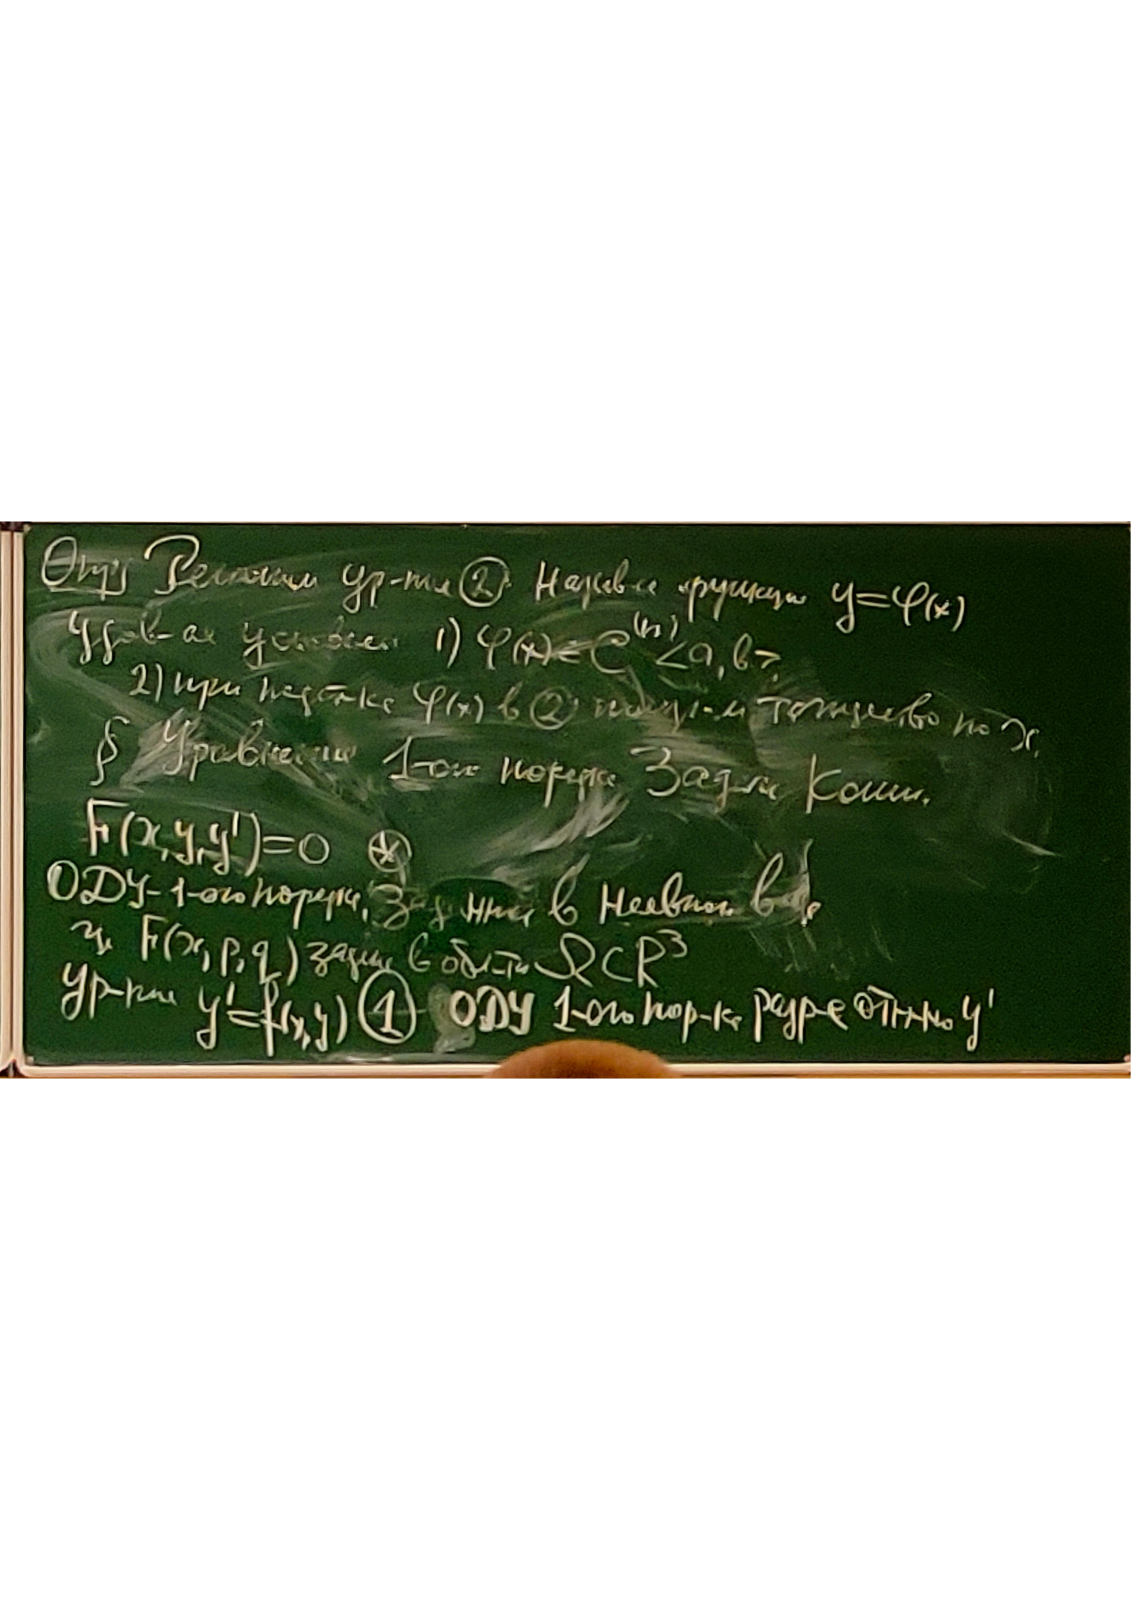 Опр Решением ур-ния ② назыв-ся функция y=φ(x)
удов-ая условиям 1) φ(x)∈C⁽ⁿ⁾<a,b>,
2) при подст-ке φ(x) в ② получ-м тождество по x.
§ Уравнения 1-ого порядка Задача Коши.
F(x,y,y')=0 ⊛
ОДУ-1-ого порядка, Заданное в неявном виде
F(x,p,q) задана в обл-ти Ω⊂R³
Ур-ние y'=f(x,y) ① ОДУ 1-ого пор-ка разр-е относ-но y'